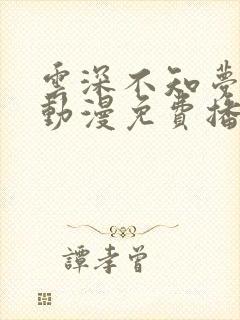 雲深不知夢
動漫免費播
譚孝曾